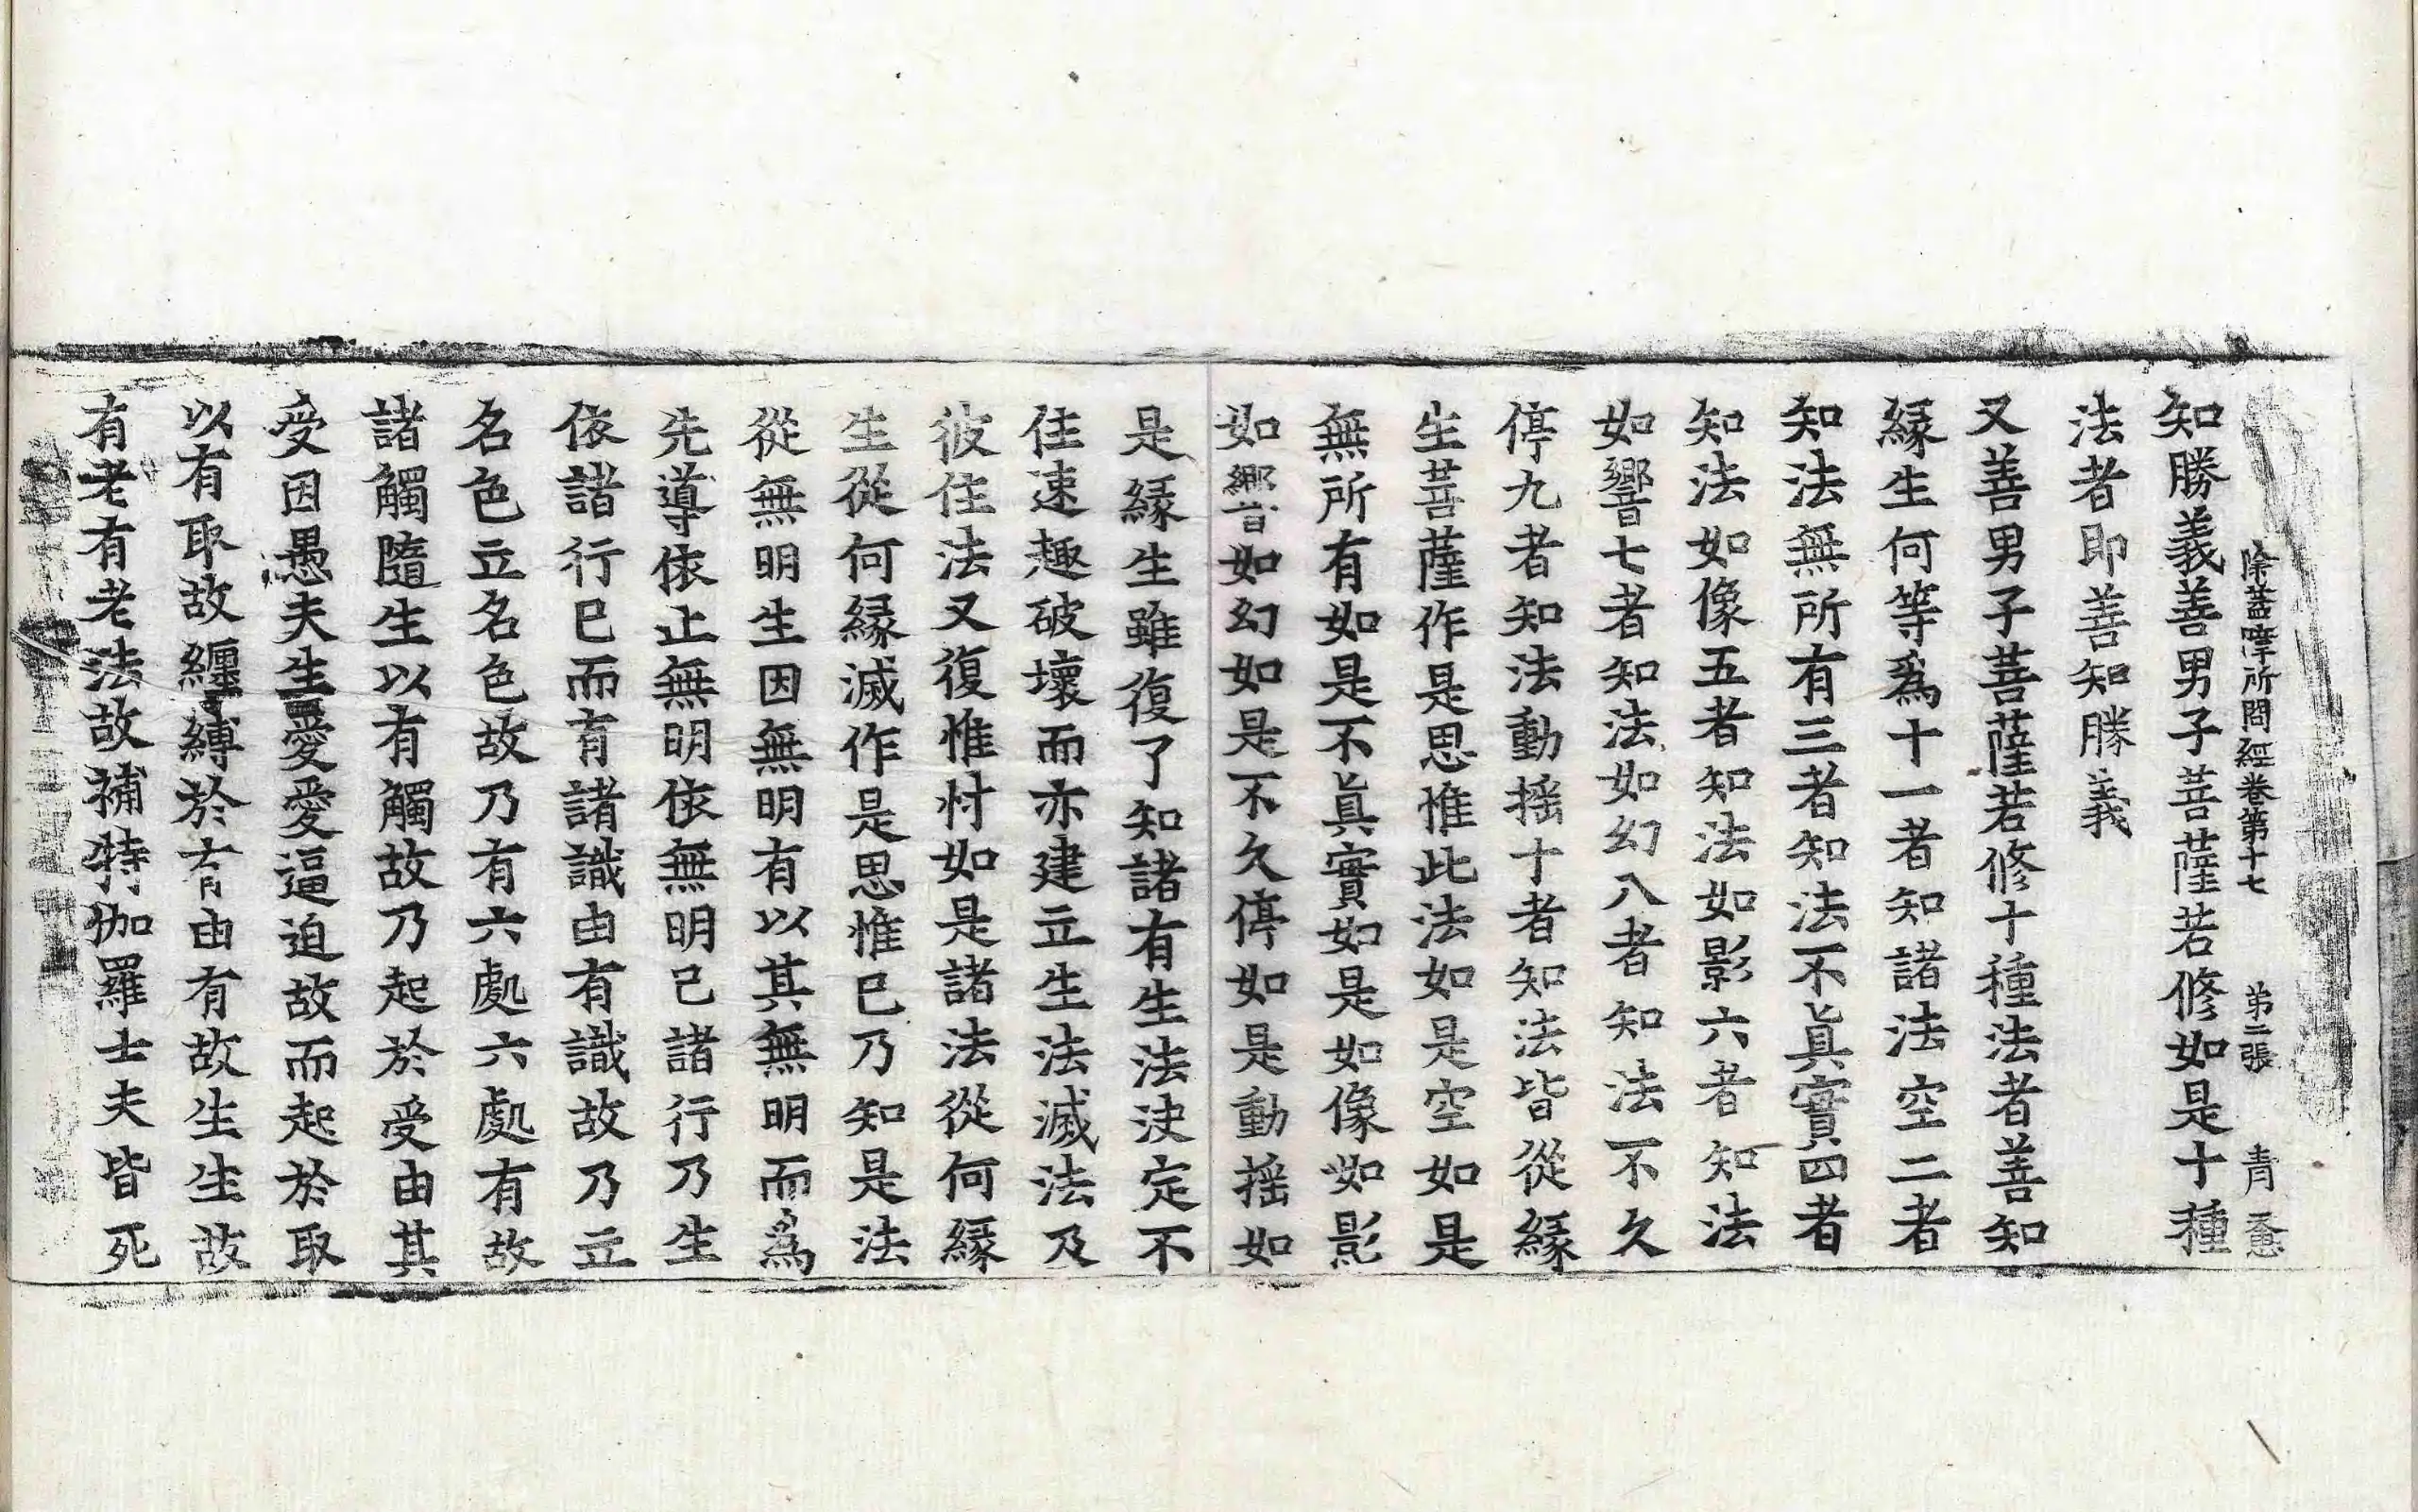 除蓋障所問經卷第十七 第二張 青
知勝義善男子菩薩若修如是十種
法者即善知勝義
又善男子菩薩若修十種法者善知
緣生何等爲十一者知諸法空二者
知法無所有三者知法不眞實四者
知法如像五者知法如影六者知法
如響七者知法如幻八者知法不久
停九者知法動揺十者知法皆從緣
生菩薩作是思惟此法如是空如是
無所有如是不眞實如是如像如影
如響如幻如是不久停如是動揺如
是緣生雖復了知諸有生法決定不
住速趣破壞而亦建立生法滅法及
彼住法又復惟忖如是諸法從何緣
生從何緣滅作是思惟已乃知是法
從無明生因無明有以其無明而爲
先導依止無明依無明已諸行乃生
依諸行已而有諸識由有識故乃立
名色立名色故乃有六處六處有故
諸觸隨生以有觸故乃起於受由其
受因愚夫生愛愛逼迫故而起於取
以有取故纏縛於有由有故生生故
有老有老法故補特伽羅士夫皆死